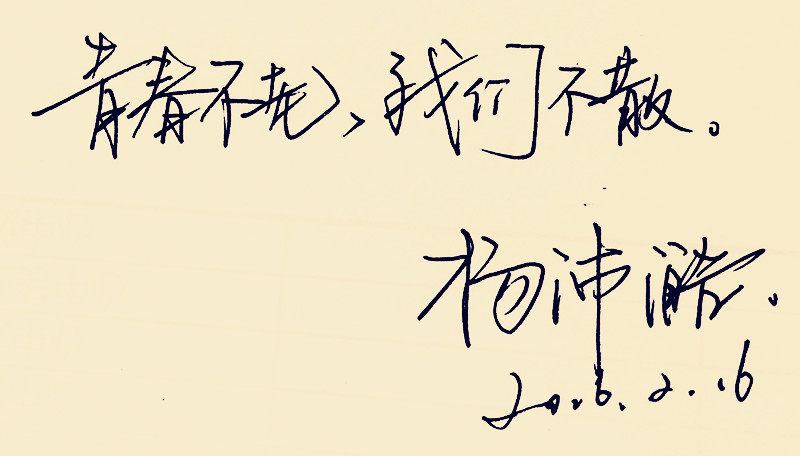 青春不老，我们不散。
杨沛
2016.2.16